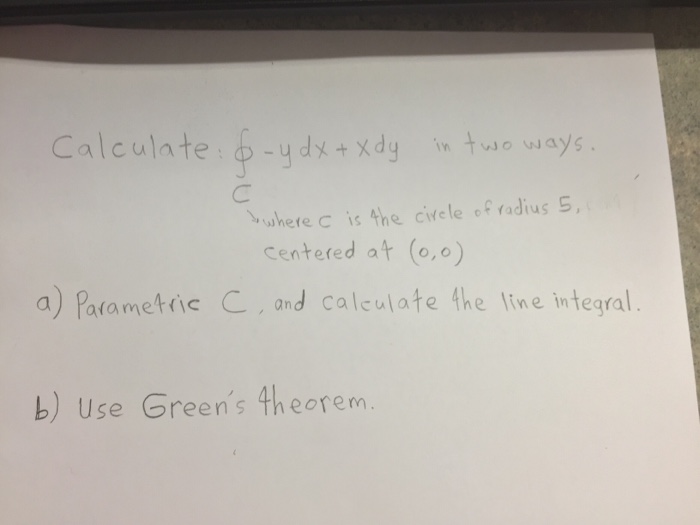 Calculate: ∮ -ydx + xdy in two ways.
C
where c is the circle of radius 5,
centered at (0,0)
a) Parametric C, and calculate the line integral.
b) Use Green's theorem.